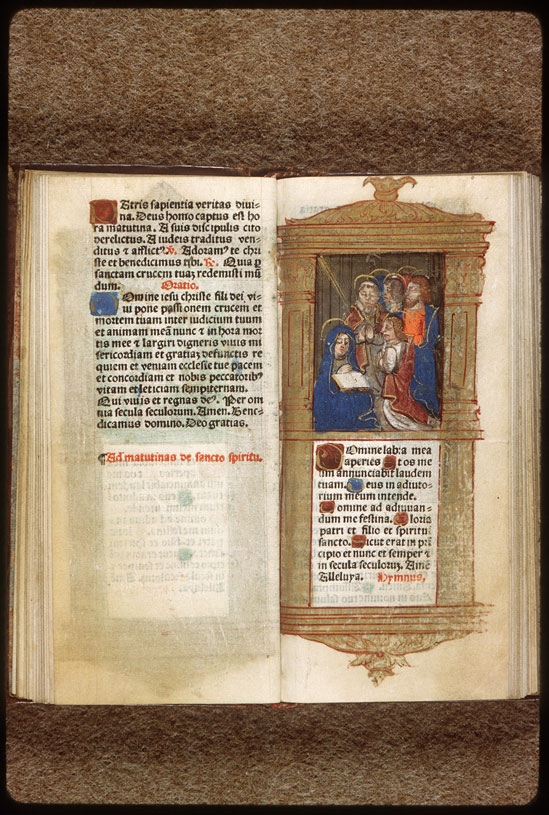 Patris sapientia veritas diui-
na. Deus homo captus est ho
ra matutina. A suis discipulis cito
derelictus. A iudeis traditus ven-
ditus ⁊ afflictꝰ. ℣. Adoramꝰ te chri
ste et benedicimus tibi. ℟. Quia ꝑ
sanctam crucem tuaꝫ redemisti mū
dum. Oratio.
Domine iesu christe fili dei vi-
ui pone passionem crucem et
mortem tuam inter iudicium tuum
et animam meā nunc ⁊ in hora mor
tis mee ⁊ largiri digneris viuis mi
sericordiam et gratiaꝫ defunctis re
quiem et veniam ecclesie tue pacem
et concordiam et nobis peccatoribꝰ
vitam et leticiam sempiternam.
Qui viuis et regnas deꝰ. Per om
nia secula seculorum. Amen. Bene-
dicamus domino. Deo gratias.
¶Ad matutinas de sancto spiritu.
Domine labia mea
aperies Et os me
um annunciabit laudem
tuam. Deus in adiuto-
rium meum intende.
Domine ad adiuuan-
dum me festina. Gloria
patri et filio et spiritui
sancto. Sicut erat in prī
cipio et nunc et semper ⁊
in secula seculoruꝫ. Amē
Alleluya. Hymnus.